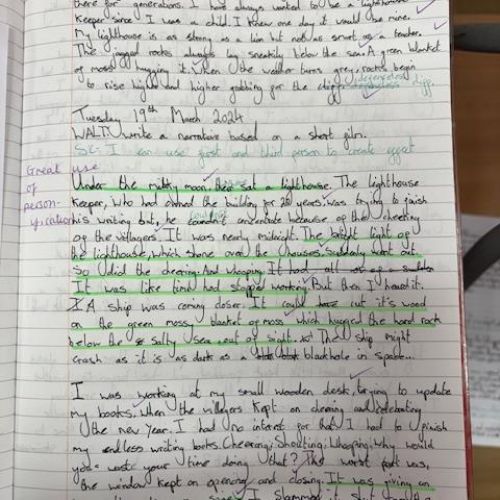 there for generations. I have always wanted to be a lighthouse
keeper since I was a child. I knew one day it would be mine.
My lighthouse is as strong as a lion but not as smart as a teacher.
The jagged rocks always lay sneakily below the sea. A green blanket
of moss hugging it. When the weather turns grey, rocks begin
to rise higher and higher grabbing for the
Tuesday 19th March 2024
WALT: write a narrative based on a short film.
SC: I can use first and third person to create effect
Great use
of
person-
ification
Under the milky moon, there sat a lighthouse. The lighthouse
keeper, who had owned the building for 20 years, was trying to finish
his writing but, he couldn't concentrate because of the cheering
of the villagers. It was nearly midnight. The bright light of
the lighthouse, which shone over the houses, suddenly went out.
So did the cheering. And whooping. It had all
It was like time had stopped working. But then I heard it.
A ship was coming closer. It could cut it's wood
on the green mossy blanket of moss, which hugged the hard rock
below the salty sea, out of sight. The ship might
crash as it is as dark as a blackhole in space...
I was working at my small wooden desk, trying to update
my books. When the villagers kept on cheering and celebrating
the new year. I had no interest for that. I had to finish
my endless writing books. Cheering, Shouting, Whooping. Why would
you waste your time doing that? The worst part was,
the window kept on opening and closing. It was giving an
I slammed it